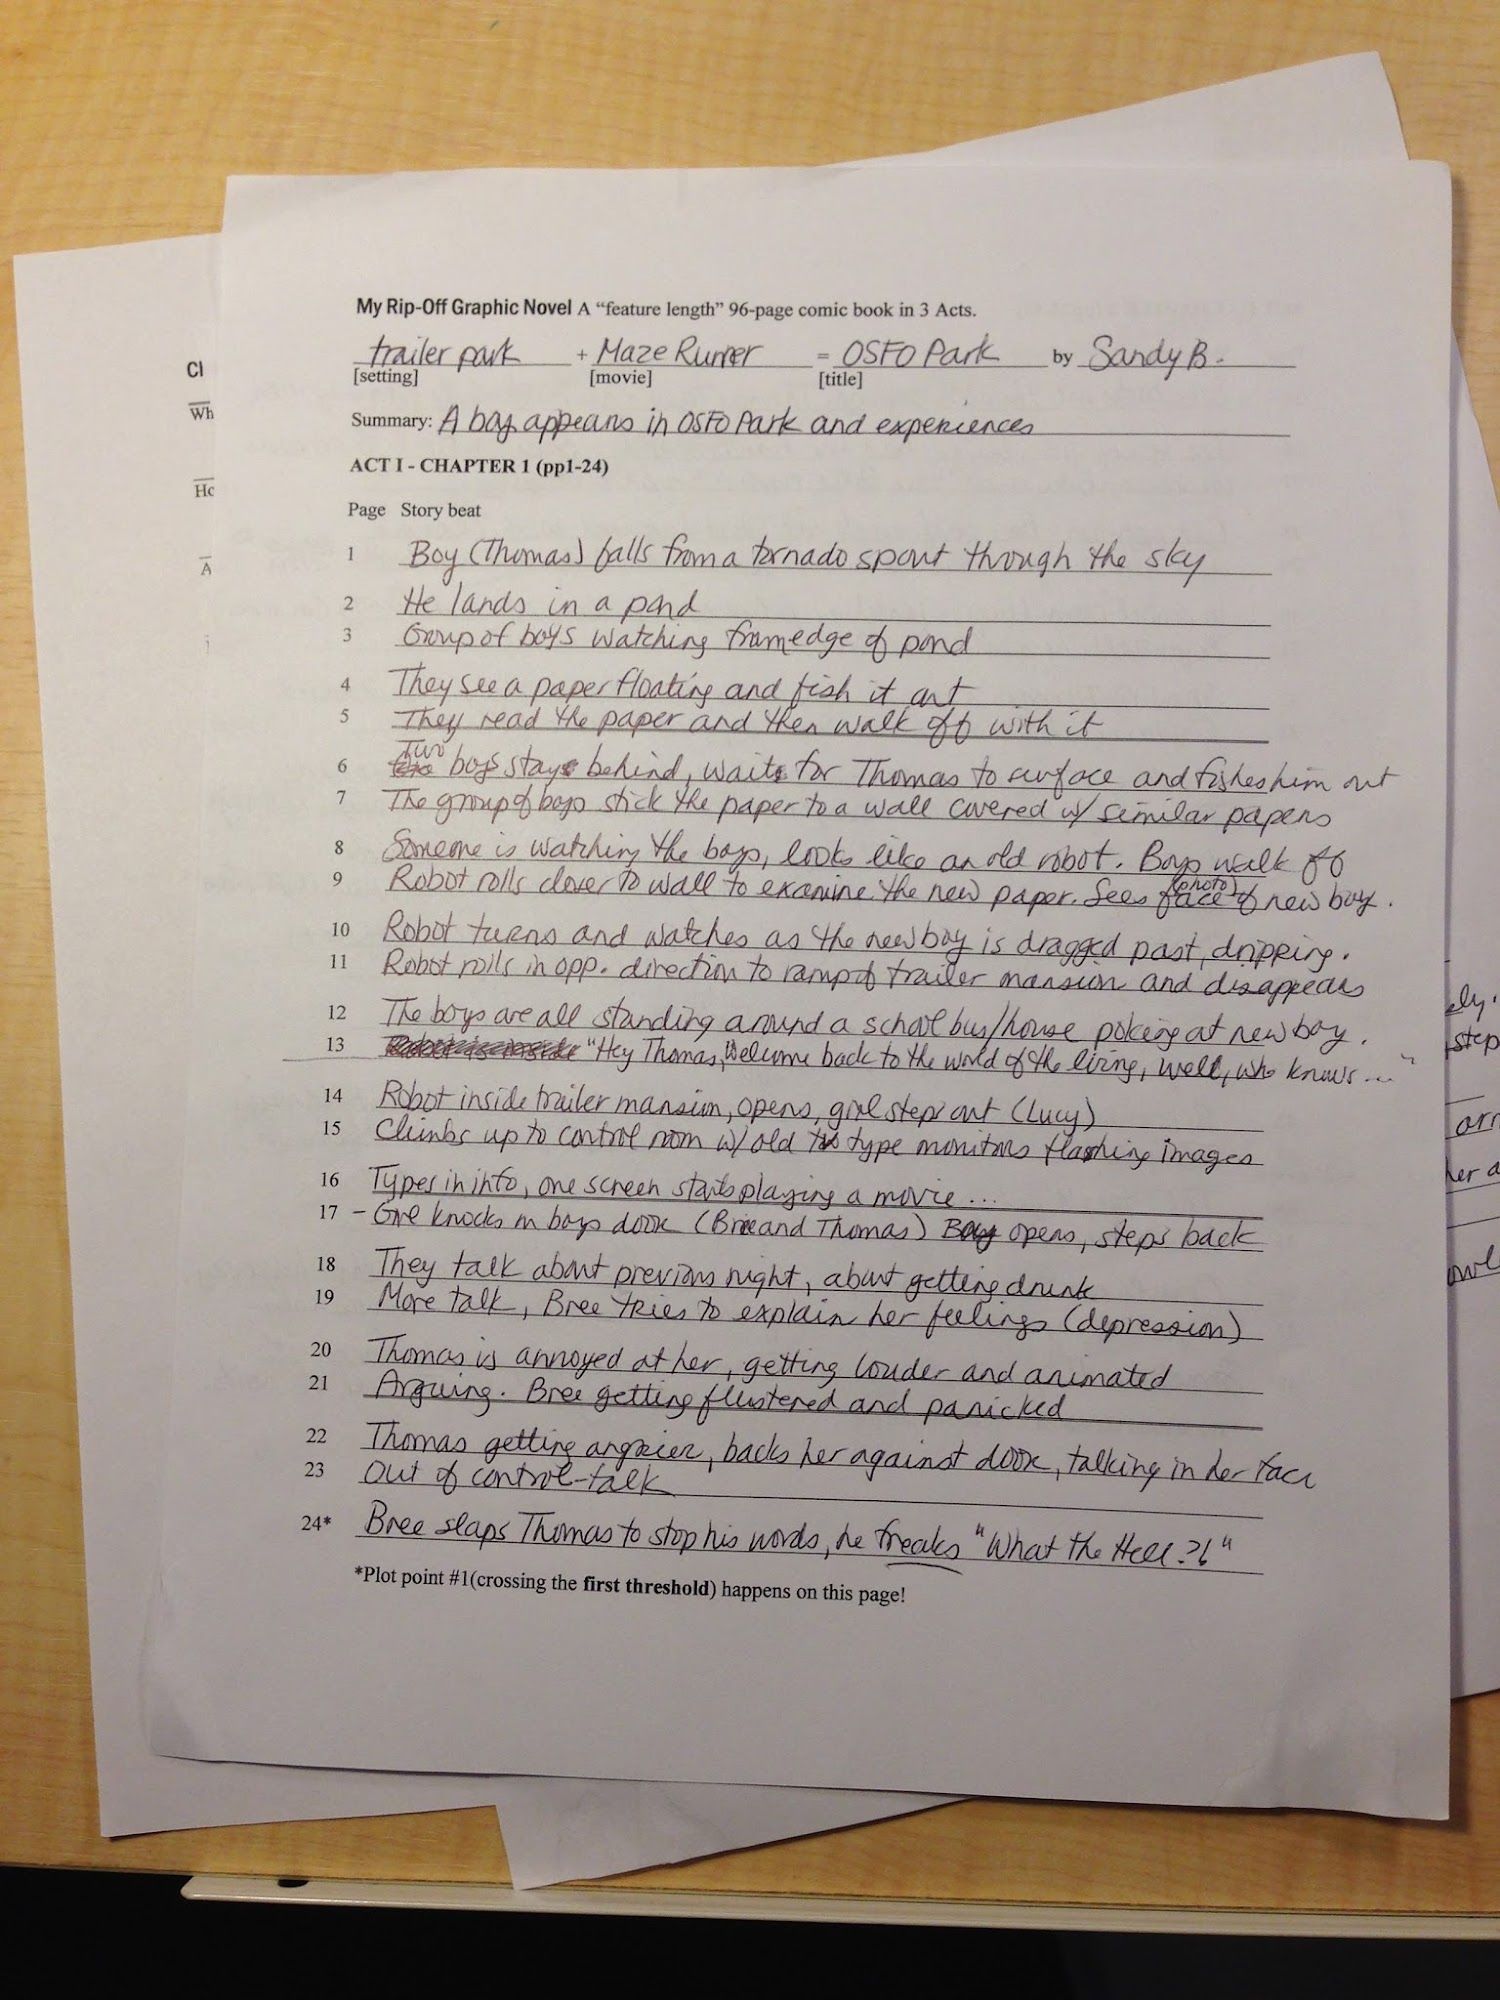 My Rip-Off Graphic Novel A “feature length” 96-page comic book in 3 Acts.
trailer park + Maze Runner = OSFO Park by Sandy B.
[setting] [movie] [title]
Summary: A boy appears in OSFO Park and experiences
ACT I - CHAPTER 1 (pp1-24)
Page Story beat
1 Boy (Thomas) falls from a tornado spout through the sky
2 He lands in a pond
3 Group of boys watching from edge of pond
4 They see a paper floating and fish it out
5 They read the paper and then walk off with it
6 Two boys stay behind, wait for Thomas to surface and fishes him out
7 The group of boys stick the paper to a wall covered w/ similar papers
8 Someone is watching the boys, looks like an old robot. Boys walk off
9 Robot rolls closer to wall to examine the new paper. Sees face (photo) of new boy.
10 Robot turns and watches as the new boy is dragged past, dripping.
11 Robot rolls in opp. direction to ramp of trailer mansion and disappears
12 The boys are all standing around a school bus/house poking at new boy.
13 "Hey Thomas, Welcome back to the world of the living, well, who knows..."
14 Robot inside trailer mansion, opens, girl steps out (Lucy)
15 Climbs up to control room w/ old type monitors flashing images
16 Types in info, one screen starts playing a movie...
17 - Girl knocks on boys door (Bree and Thomas) Boy opens, steps back
18 They talk about previous night, about getting drunk
19 More talk, Bree tries to explain her feelings (depression)
20 Thomas is annoyed at her, getting louder and animated
21 Arguing. Bree getting flustered and panicked
22 Thomas getting angrier, backs her against door, talking in her face
23 Out of control-talk
24* Bree slaps Thomas to stop his words, he freaks "What the Hell?!"
*Plot point #1(crossing the first threshold) happens on this page!
Cl
Wh
Ho
A
ely.
step
her a